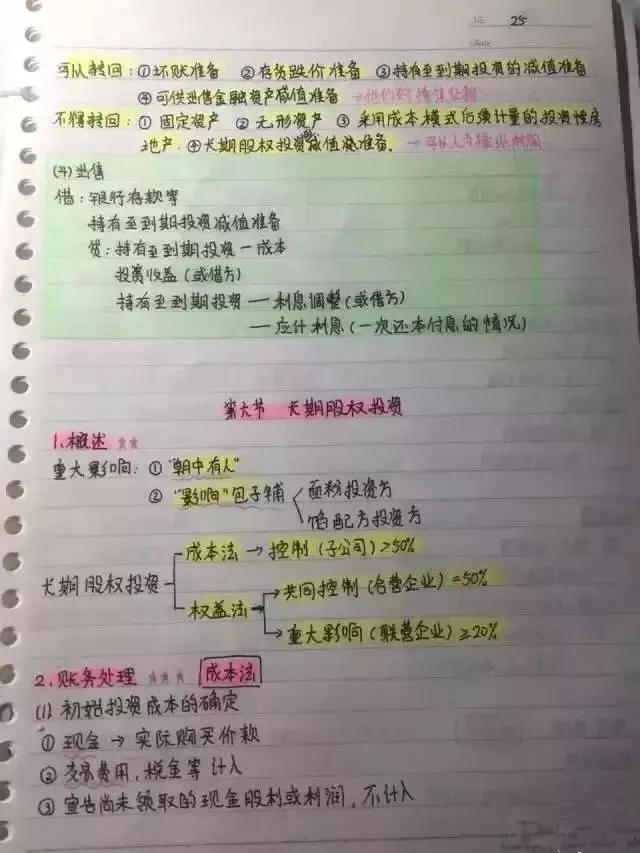 No. 25
可以转回：①坏账准备 ②存货跌价准备 ③持有至到期投资的减值准备
④可供出售金融资产减值准备 →
不得转回：①固定资产 ②无形资产 ③采用成本模式后续计量的投资性房
地产.④长期股权投资减值准备. →可以人为操纵利润
(4)出售
借：银行存款等
持有至到期投资减值准备
贷：持有至到期投资—成本
投资收益(或借方)
持有至到期投资—利息调整(或借方)
—应计利息(一次还本付息的情况)
第六节 长期股权投资
1.概述 ★★
重大影响：①“朝中有人”
②“影响”包子铺 面粉投资方
馅配方投资方
成本法→控制(子公司)>50%
长期股权投资
共同控制(合营企业)=50%
权益法→
重大影响(联营企业)≥20%
2.账务处理 ★★★ 成本法
(1)初始投资成本的确定
①现金→实际购买价款
②交易费用,税金等计入
③宣告尚未领取的现金股利或利润,不计入